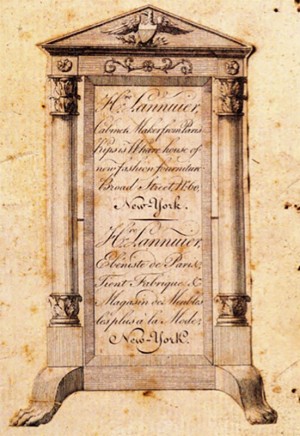 Hre. Lannuier,
Cabinet Maker from Paris
Kips is Whare house of
new fashion fourniture
Broad Street, No. 60,
New-York.
Hre. Lannuier,
Ebéniste de Paris,
Tient Fabrique, &
Magasin de Meubles
les plus à la Mode,
New-York.